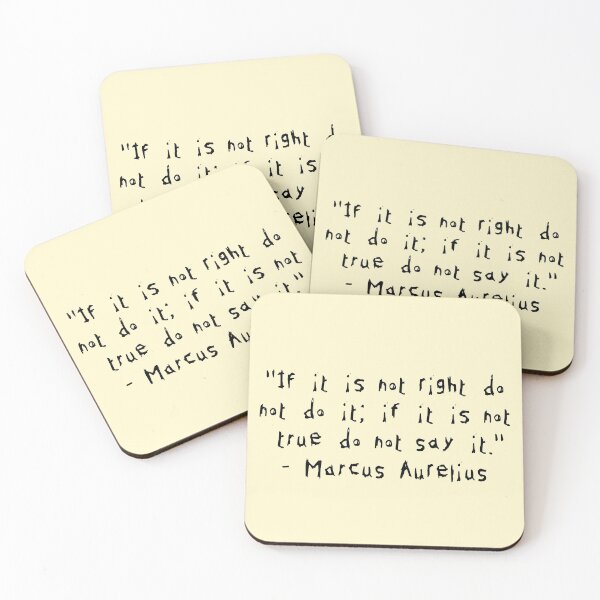 "If it is not right d
not do it; if it is
say
"If it is not right do
not do it; if it is not
true do not say it."
- Marcus Aurelius
"If it is not right do
not do it; if it is not
true do not say it."
- Marcus
"If it is not right do
not do it; if it is not
true do not say it."
- Marcus Aurelius